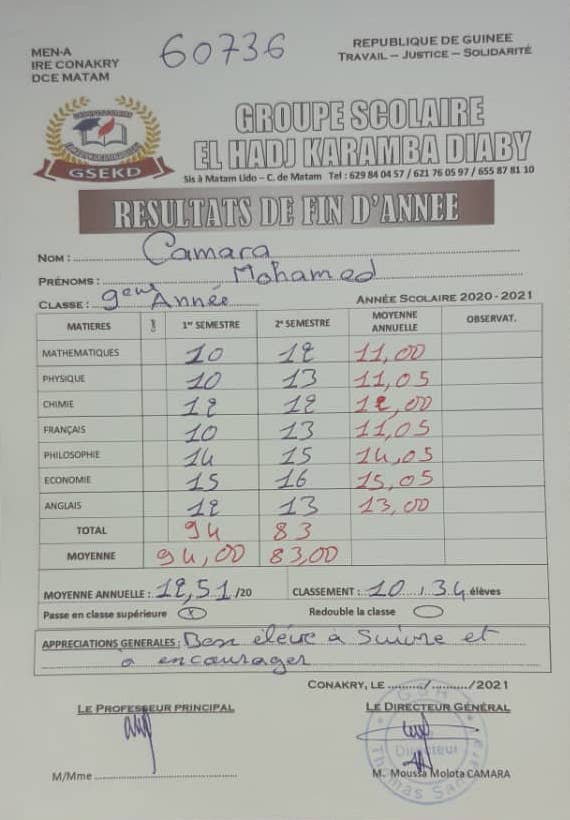 MEN-A
IRE CONAKRY
DCE MATAM
60736
REPUBLIQUE DE GUINEE
TRAVAIL – JUSTICE – SOLIDARITÉ
GSEKD
GROUPE SCOLAIRE
EL HADJ KARAMBA DIABY
Sis à Matam Lido – C. de Matam Tel : 629 84 04 57 / 621 76 05 97 / 655 87 81 10
RESULTATS DE FIN D'ANNEE
NOM : Camara
PRÉNOMS : Mohamed
CLASSE : 9eme Année ANNÉE SCOLAIRE 2020 - 2021
MATIERES 1er SEMESTRE 2e SEMESTRE MOYENNE ANNUELLE OBSERVAT.
MATHEMATIQUES 10 12 11,00
PHYSIQUE 10 13 11,05
CHIMIE 12 12 12,00
FRANÇAIS 10 13 11,05
PHILOSOPHIE 14 15 14,05
ECONOMIE 15 16 15,05
ANGLAIS 12 13 13,00
TOTAL 94 83
MOYENNE 94,00 83,00
MOYENNE ANNUELLE : 12,51/20 CLASSEMENT : 10 / 34 élèves
Passe en classe supérieure x Redouble la classe
APPRECIATIONS GENERALES : Bon élève à suivre et
à encourager
CONAKRY, LE ........../........../2021
LE PROFESSEUR PRINCIPAL LE DIRECTEUR GÉNÉRAL
Directeur
M/Mme M. Moussa Molota CAMARA